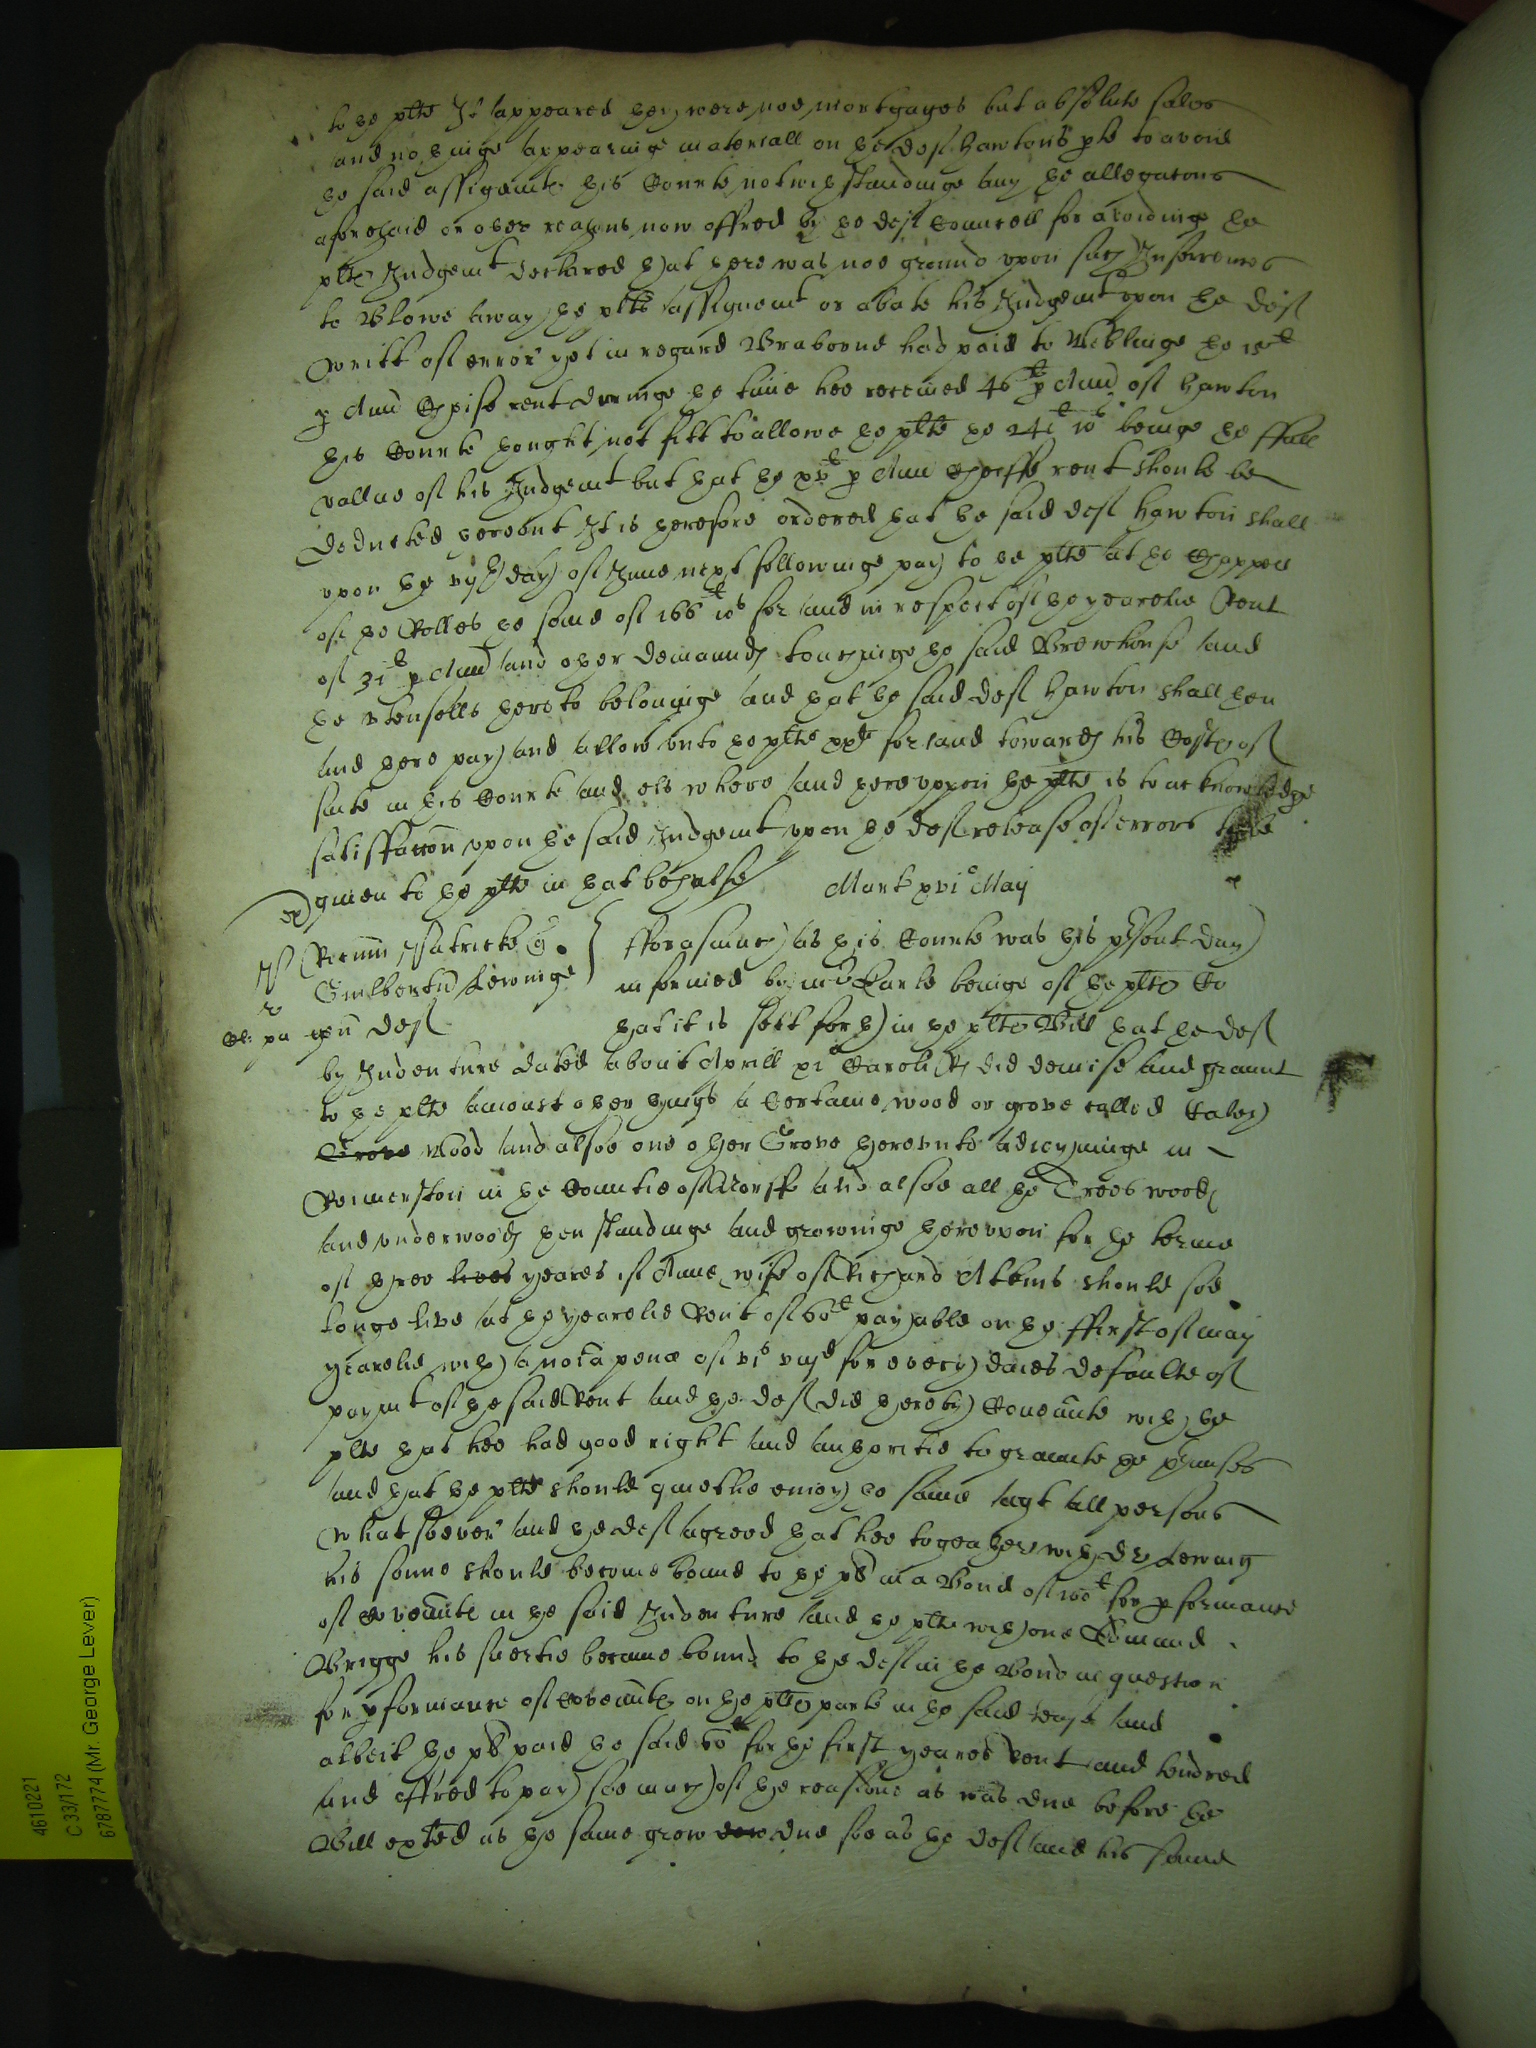 to the plte It appeared they were noe mortgages but absolute sales
and nothinge appearinge materiall on the deft Hawtons pte to avoid
the said assignemte this Courte notwithstandinge any the allegacons
aforesaid or other reasons now offred by the deft Councell for avoidinge the
plte Judgemt declared that there was noe ground upon such Inferences
to blowe away the plte assignemt or abate his Judgemt upon the deft
writt of error yet in regard Braborne had paid to the 15li
p Ann Cheife rent duringe the time hee received 46li p Ann of Hawton
this Courte thought not fitt to allowe the plte the 241li 10s beinge the ffull
vallue of his Judgemt but that the xvli p Ann Cheiffe rent should be
deducted thereout It is therefore ordered that the said deft Hawton shall
upon the vijth day of June next followinge pay to the plte at the Chappell
of the Rolles the some of 166li 10s for and in respect of the yearelie Rent
of 31li p Ann and other demaunds touchinge the said Brewhouse and
the utensells thereto belonginge and that the said deft Hawton shall then
and there pay and allow unto the plte xxli for and towards his Costes of
suite in this Courte and els where and thereuppon the plte is to acknowledge
satisffaccon upon the said Judgemt upon the deft release of errors to be
given to the plte in that behalfe
Mart xvio Maij
Ricum Patricke q
Guilbertu Lewinge
gen deft
fforasmuch as this Courte was this psent day
informed by mr Earle beinge of the plte Co
that it is sett forth in the plte Bill that the deft
by Indenture dated about Aprill xio Caroli Rs did demise and graunt
to the plte amonst other things a Certaine wood or grove called
Grove Wood and alsoe one other Grove thereunto adioyninge in
Reimerston in the Countie of Norff and alsoe all the Trees woods
and underwoods then standinge and growinge thereupon for the terme
of three lives yeares if Anne wife of Richard Atkins should soe
longe live at the yearelie Rent of 60li payable on the ffirst of may
yearelie with a noīa penæ of vis viijd for every daies defaulte of
paymt of the said Rent and the deft did thereby Coven̄nte with the
plte that hee had good right and authoritie to graunte the pmisses
and that the plte should quietlie enioy the same agt all persons
whatsoever and the deft agreed that hee togeather with Dr Lewing
his sonne should become bound to the pl in a Bond of 100li for pformance
of coven̄nte in the said Indenture and the plte with one Edmund
Brigge his suertie became bound to the deft in the Bond in question
for pformance of coven̄nte on the plte parte in the said lease and
albeit the pl paid the said 60li for the first yeares rent and tendred
and offred to pay soe much of the reasidue as was due before the
Bill exhted as the same grew due soe as the deft and his sonne
4610221
C 33/172
6787774 (Mr. George Lever)